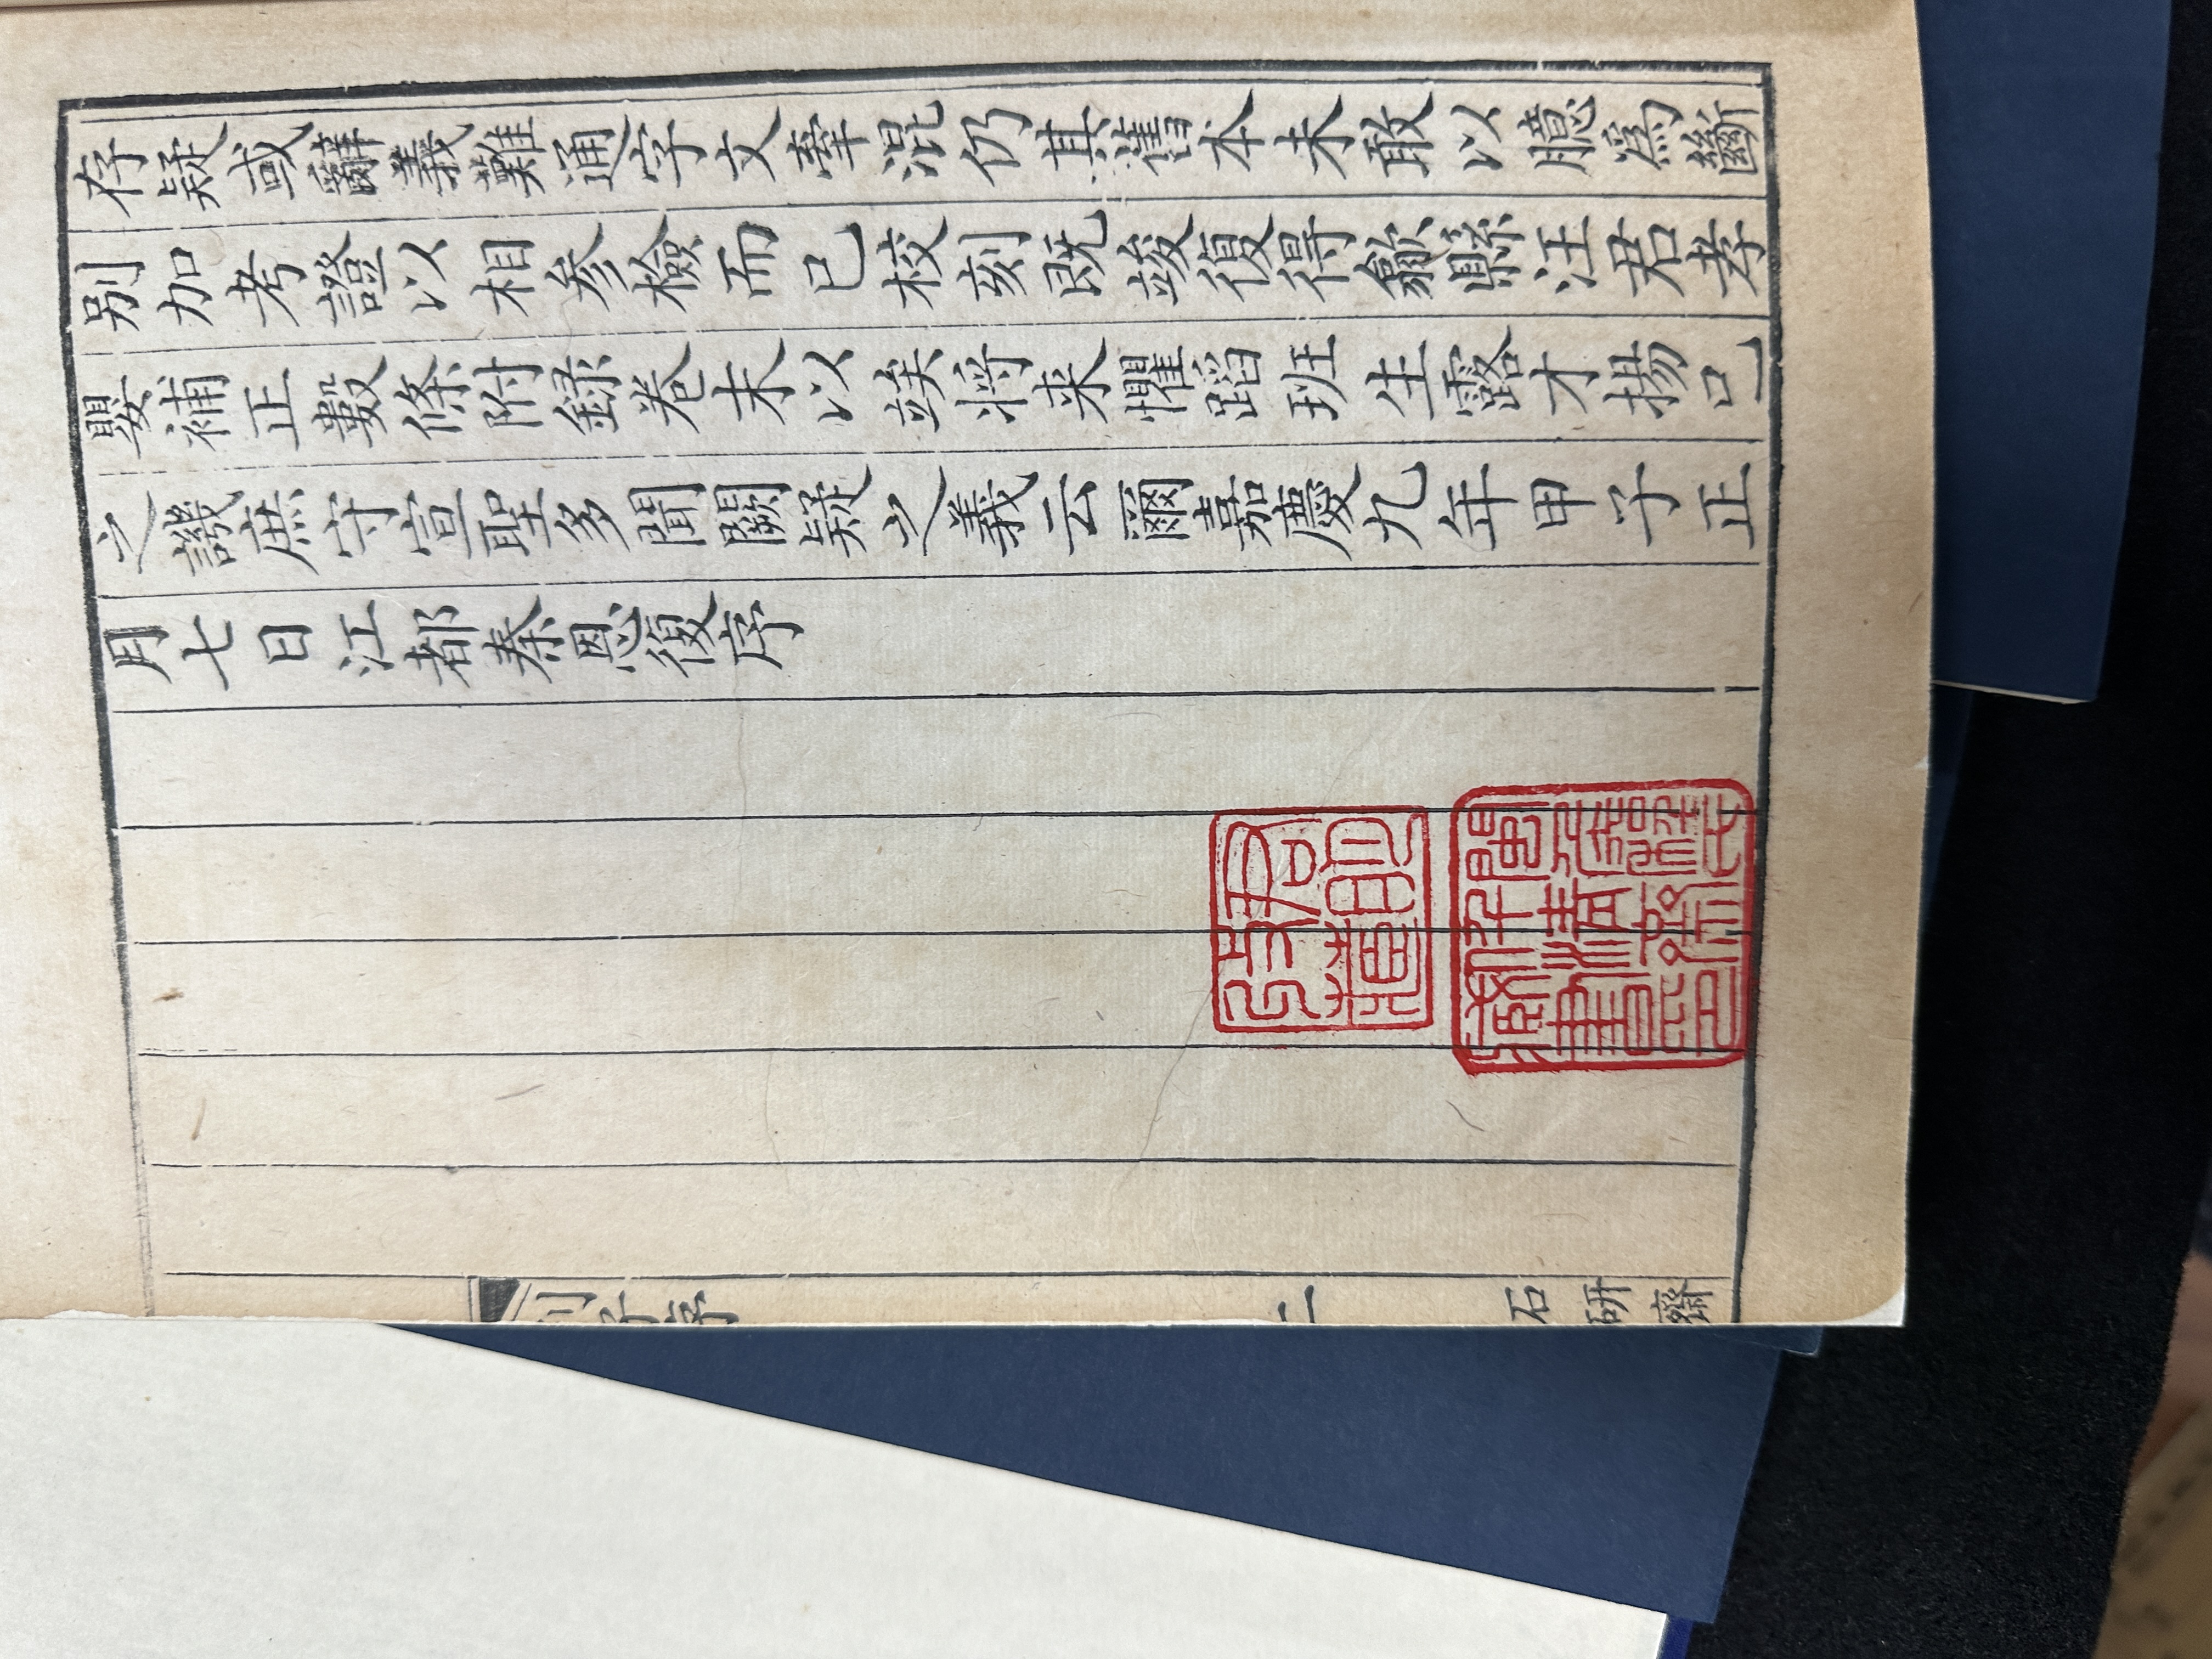 存疑或辭義難通字文牽混仍其舊本未敢以臆爲斷
別加考證以相參檢而已校刻既竣復得歙縣汪君孝
嬰補正數條附錄卷末以竢將来懼蹈班生露才揚己
之譏庶守宣聖多聞闕疑之義云爾嘉慶九年甲子正
月七日江都秦恩復序
列子序 二 石研齋